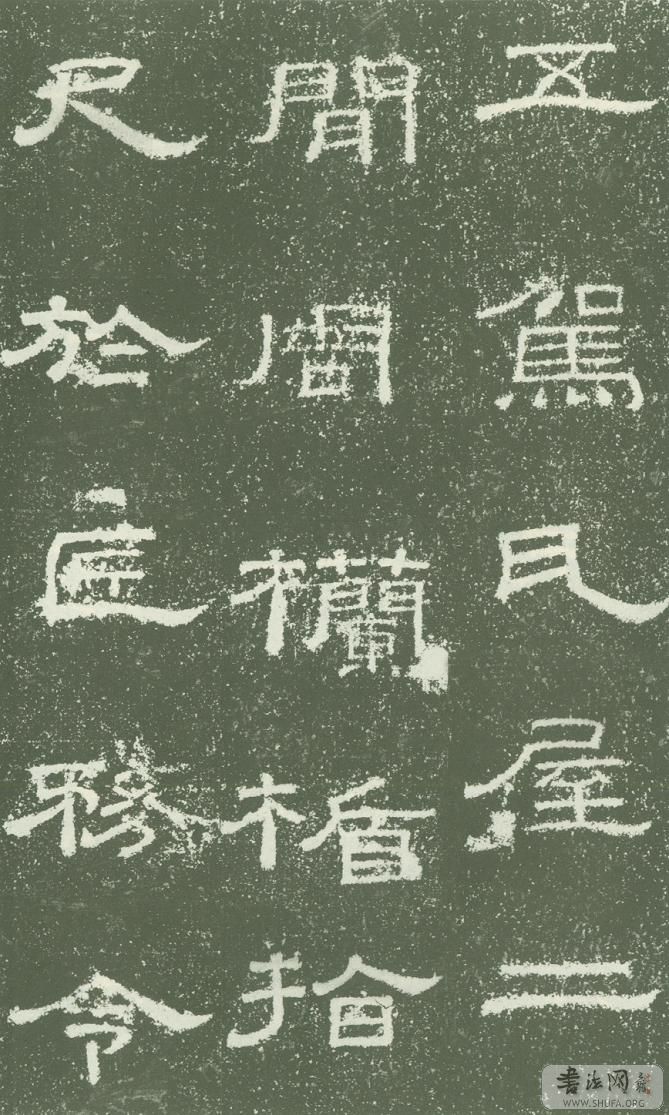 五駕瓦屋二
間周欄楯拾
尺於匠務令
書法网
WWW.SHUFA.ORG